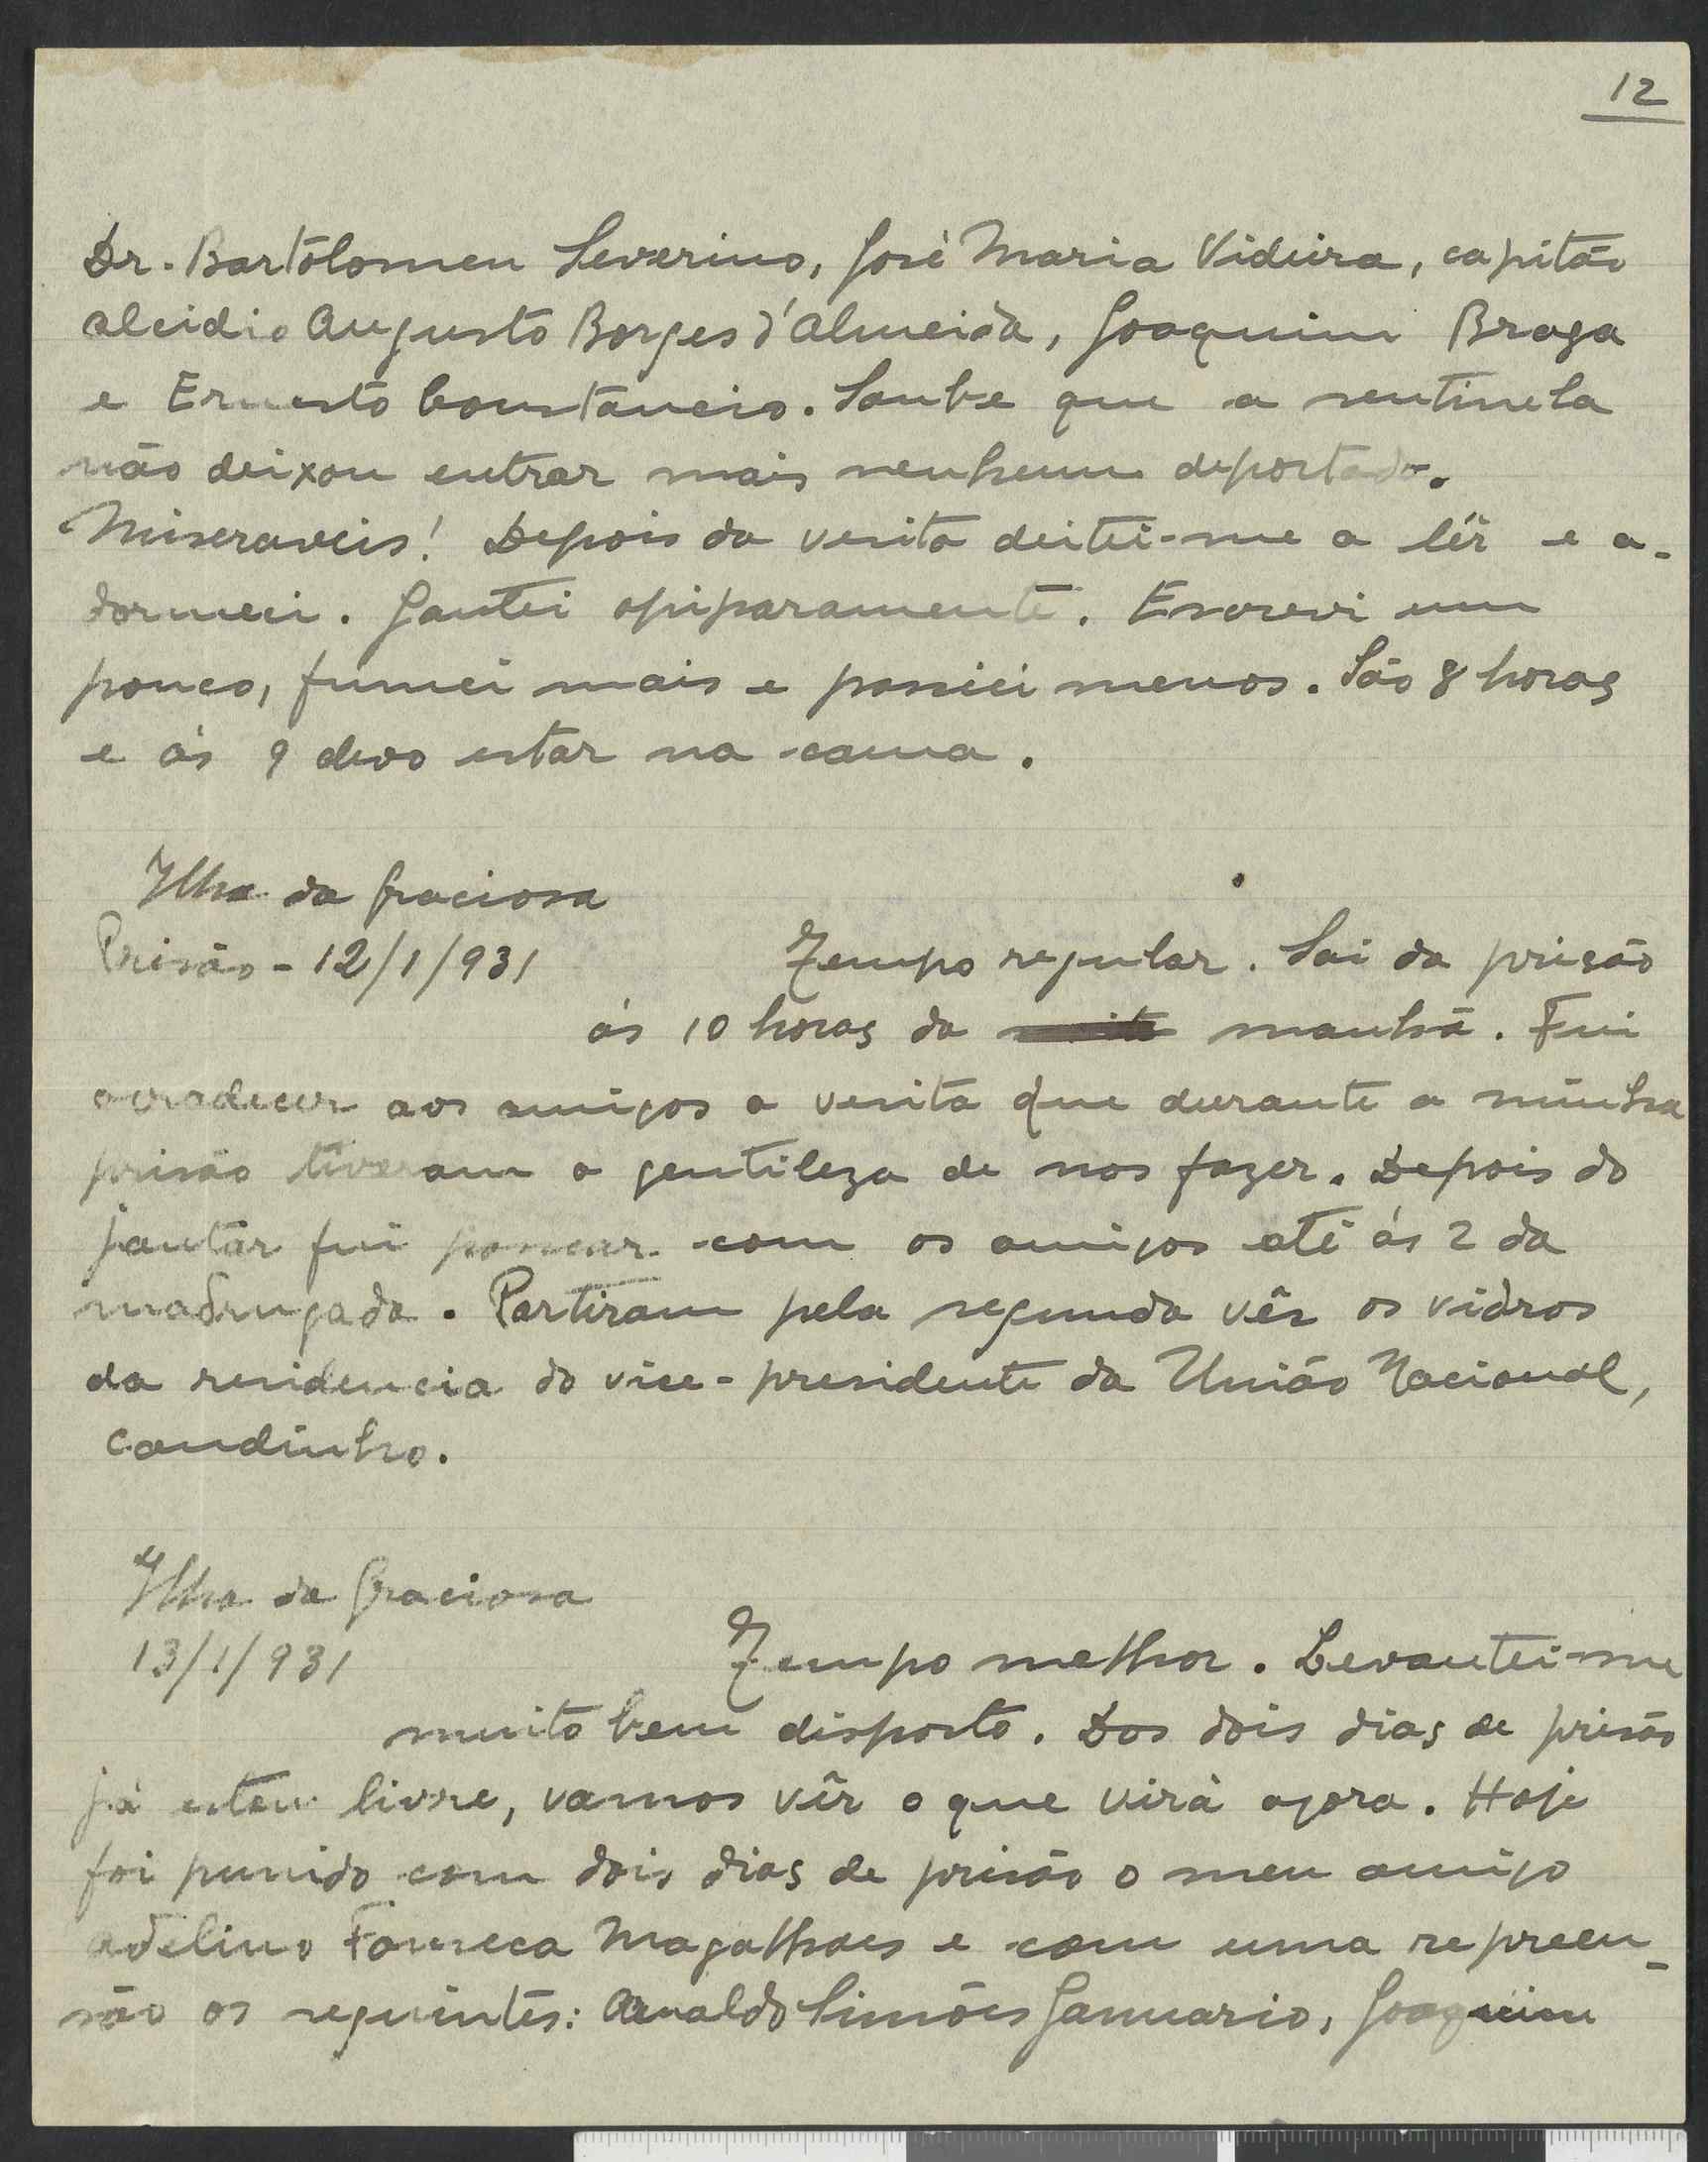 12
Dr. Bartólomeu Severino, José Maria Videira, capitão
Alcidio Augusto Borges d'Almeida, Joaquim Braga
e Ernesto Constancio. Soube que a sentinela
não deixou entrar mais nenhum deportado.
Miseraveis! Depois da vesita deitei-me a lêr e a-
dormeci. Jantei opiparamente. Escrevi um
pouco, fumei mais e passiei menos. São 8 horas
e ás 9 devo estar na cama.
Ilha da Graciosa
Prisão - 12/1/931 Tempo regular. Sai da prisão
ás 10 horas da noite manhã. Fui
agradecer aos amigos a vesita que durante a minha
prisão tiveram a gentileza de nos fazer. Depois do
jantar fui passear com os amigos até ás 2 da
madrugada. Partiram pela segunda vês os vidros
da residencia do vice-presidente da União Nacional,
Candinho.
Ilha da Graciosa
13/1/931 Tempo melhor. Levantei-me
muito bem disposto. Dos dois dias de prisão
já estou livre, vamos vêr o que virá agora. Hoje
foi punido com dois dias de prisão o meu amigo
Adelino Fonseca Magalhaes e com uma repreen-
são os seguintes: Arnaldo Simões Januario, Joaquim